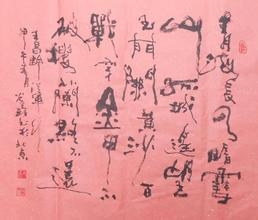 青海長雲暗雪
山孤城遥望
玉門關黄沙百
戰穿金甲不
破樓蘭終不還
王昌齡
甲午年 北京